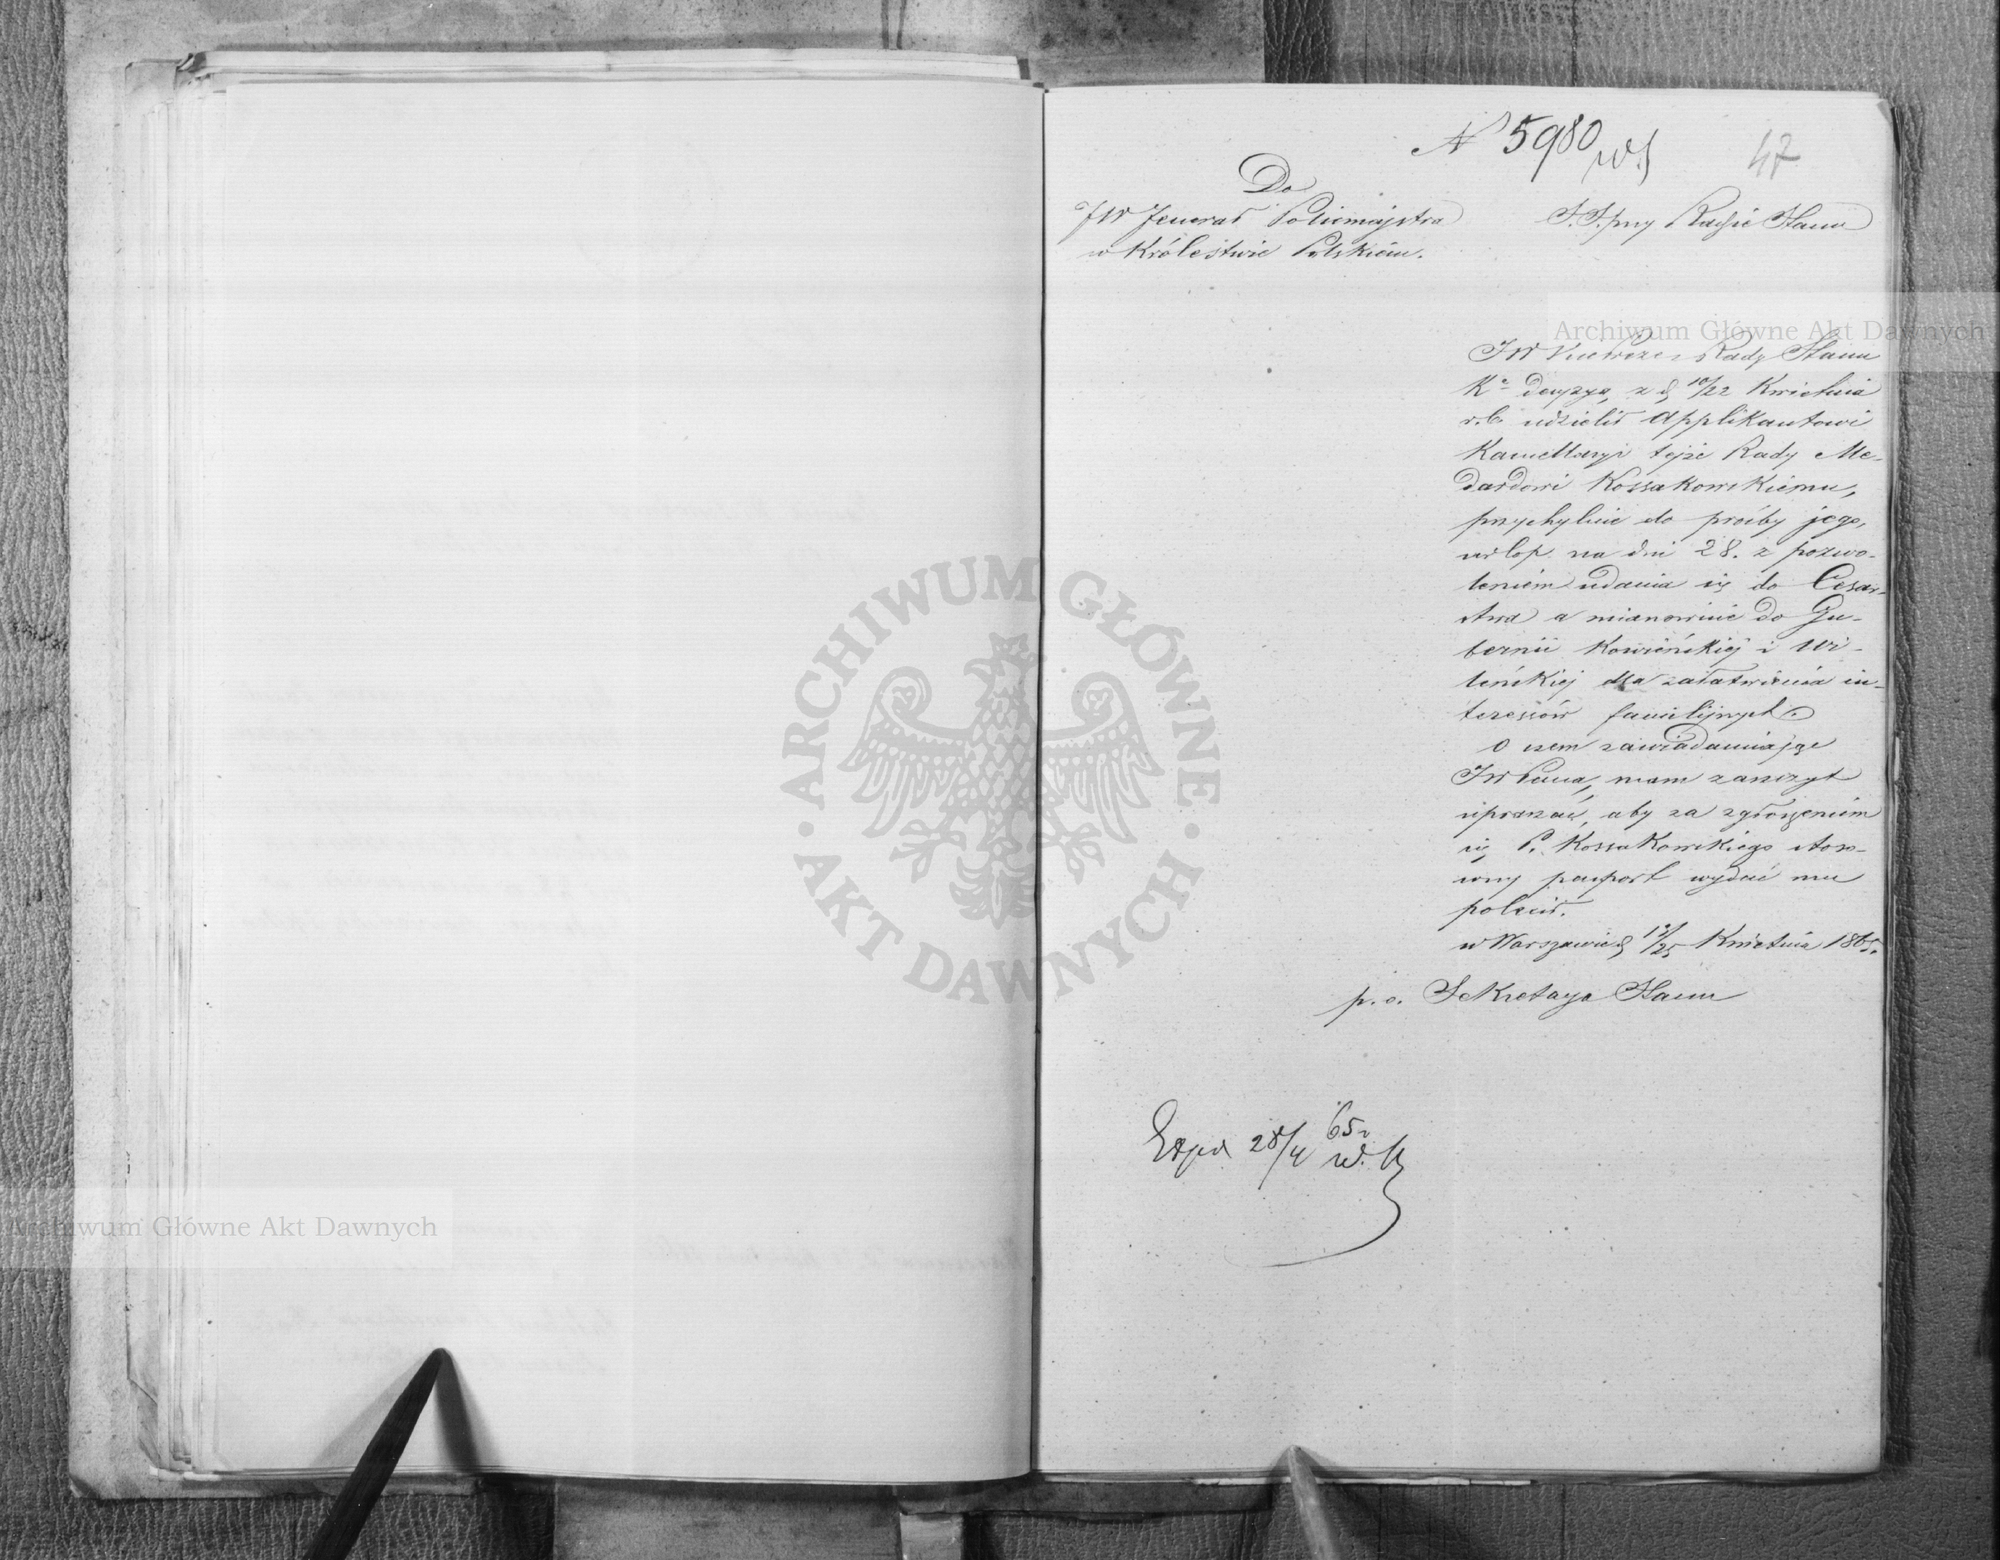 N 5980
47
Do
JW Jenerał Policmajstra
w Królestwie Polskiem.
S. S. przy Radzie Stanu
Archiwum Główne Akt Dawnych
JW VicePrezes Rady Stanu
K. decyzyą z d 10/22 Kwietnia
r.b. udzielił Applikantowi
Kancellaryi tejże Rady Me-
dardowi Kossakowskiemu,
przychylnie do prośby jego,
urlop na dni 28. z pozwo-
leniem udania się do Cesar-
stwa a mianowicie do Gu-
bernii Kowieńskiej i Wi-
leńskiej dla załatwienia in-
teressów familijnych.
O czem zawiadamiając
JWPana, mam zaszczyt
upraszać, aby za zgłoszeniem
się P. Kossakowskiego stoso-
wny paszport wydać mu
polecił.
w Warszawie d 13/25 Kwietnia 1865.
p. o. Sekretarza Stanu
Exped 28/4 65r
ARCHIWUM GŁÓWNE
AKT DAWNYCH
Archiwum Główne Akt Dawnych